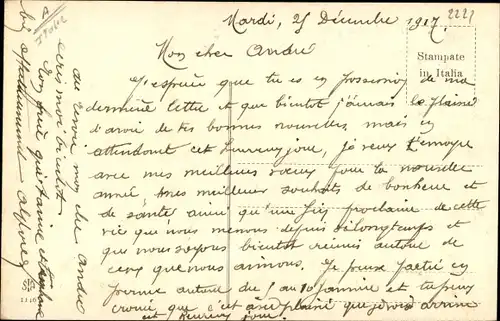 Mardi, 25 Décembre 1917.
2221
Mon cher André
Stampate
in Italia
J'espère que tu es en possession de ma
dernière lettre et que bientôt j'aurais le plaisir
d'avoir de tes bonnes nouvelles, mais en
attendant cet heureux jour, je veux t'envoyer
avec mes meilleurs vœux pour la nouvelle
année, mes meilleurs souhaits de bonheur et
de santé ainsi qu'une fin prochaine de cette
vie que nous menons depuis si longtemps et
que nous soyons bientôt réunis autour de
ceux que nous aimons. Je pense partir en
autour du 5 au 10 janvier et tu peux
croire que c'est avec plaisir que je vois arriver
cet heureux jour.
au revoir mon cher André
écris moi bientôt
Ton frère qui t'aime et t'embrasse
bien affectueusement